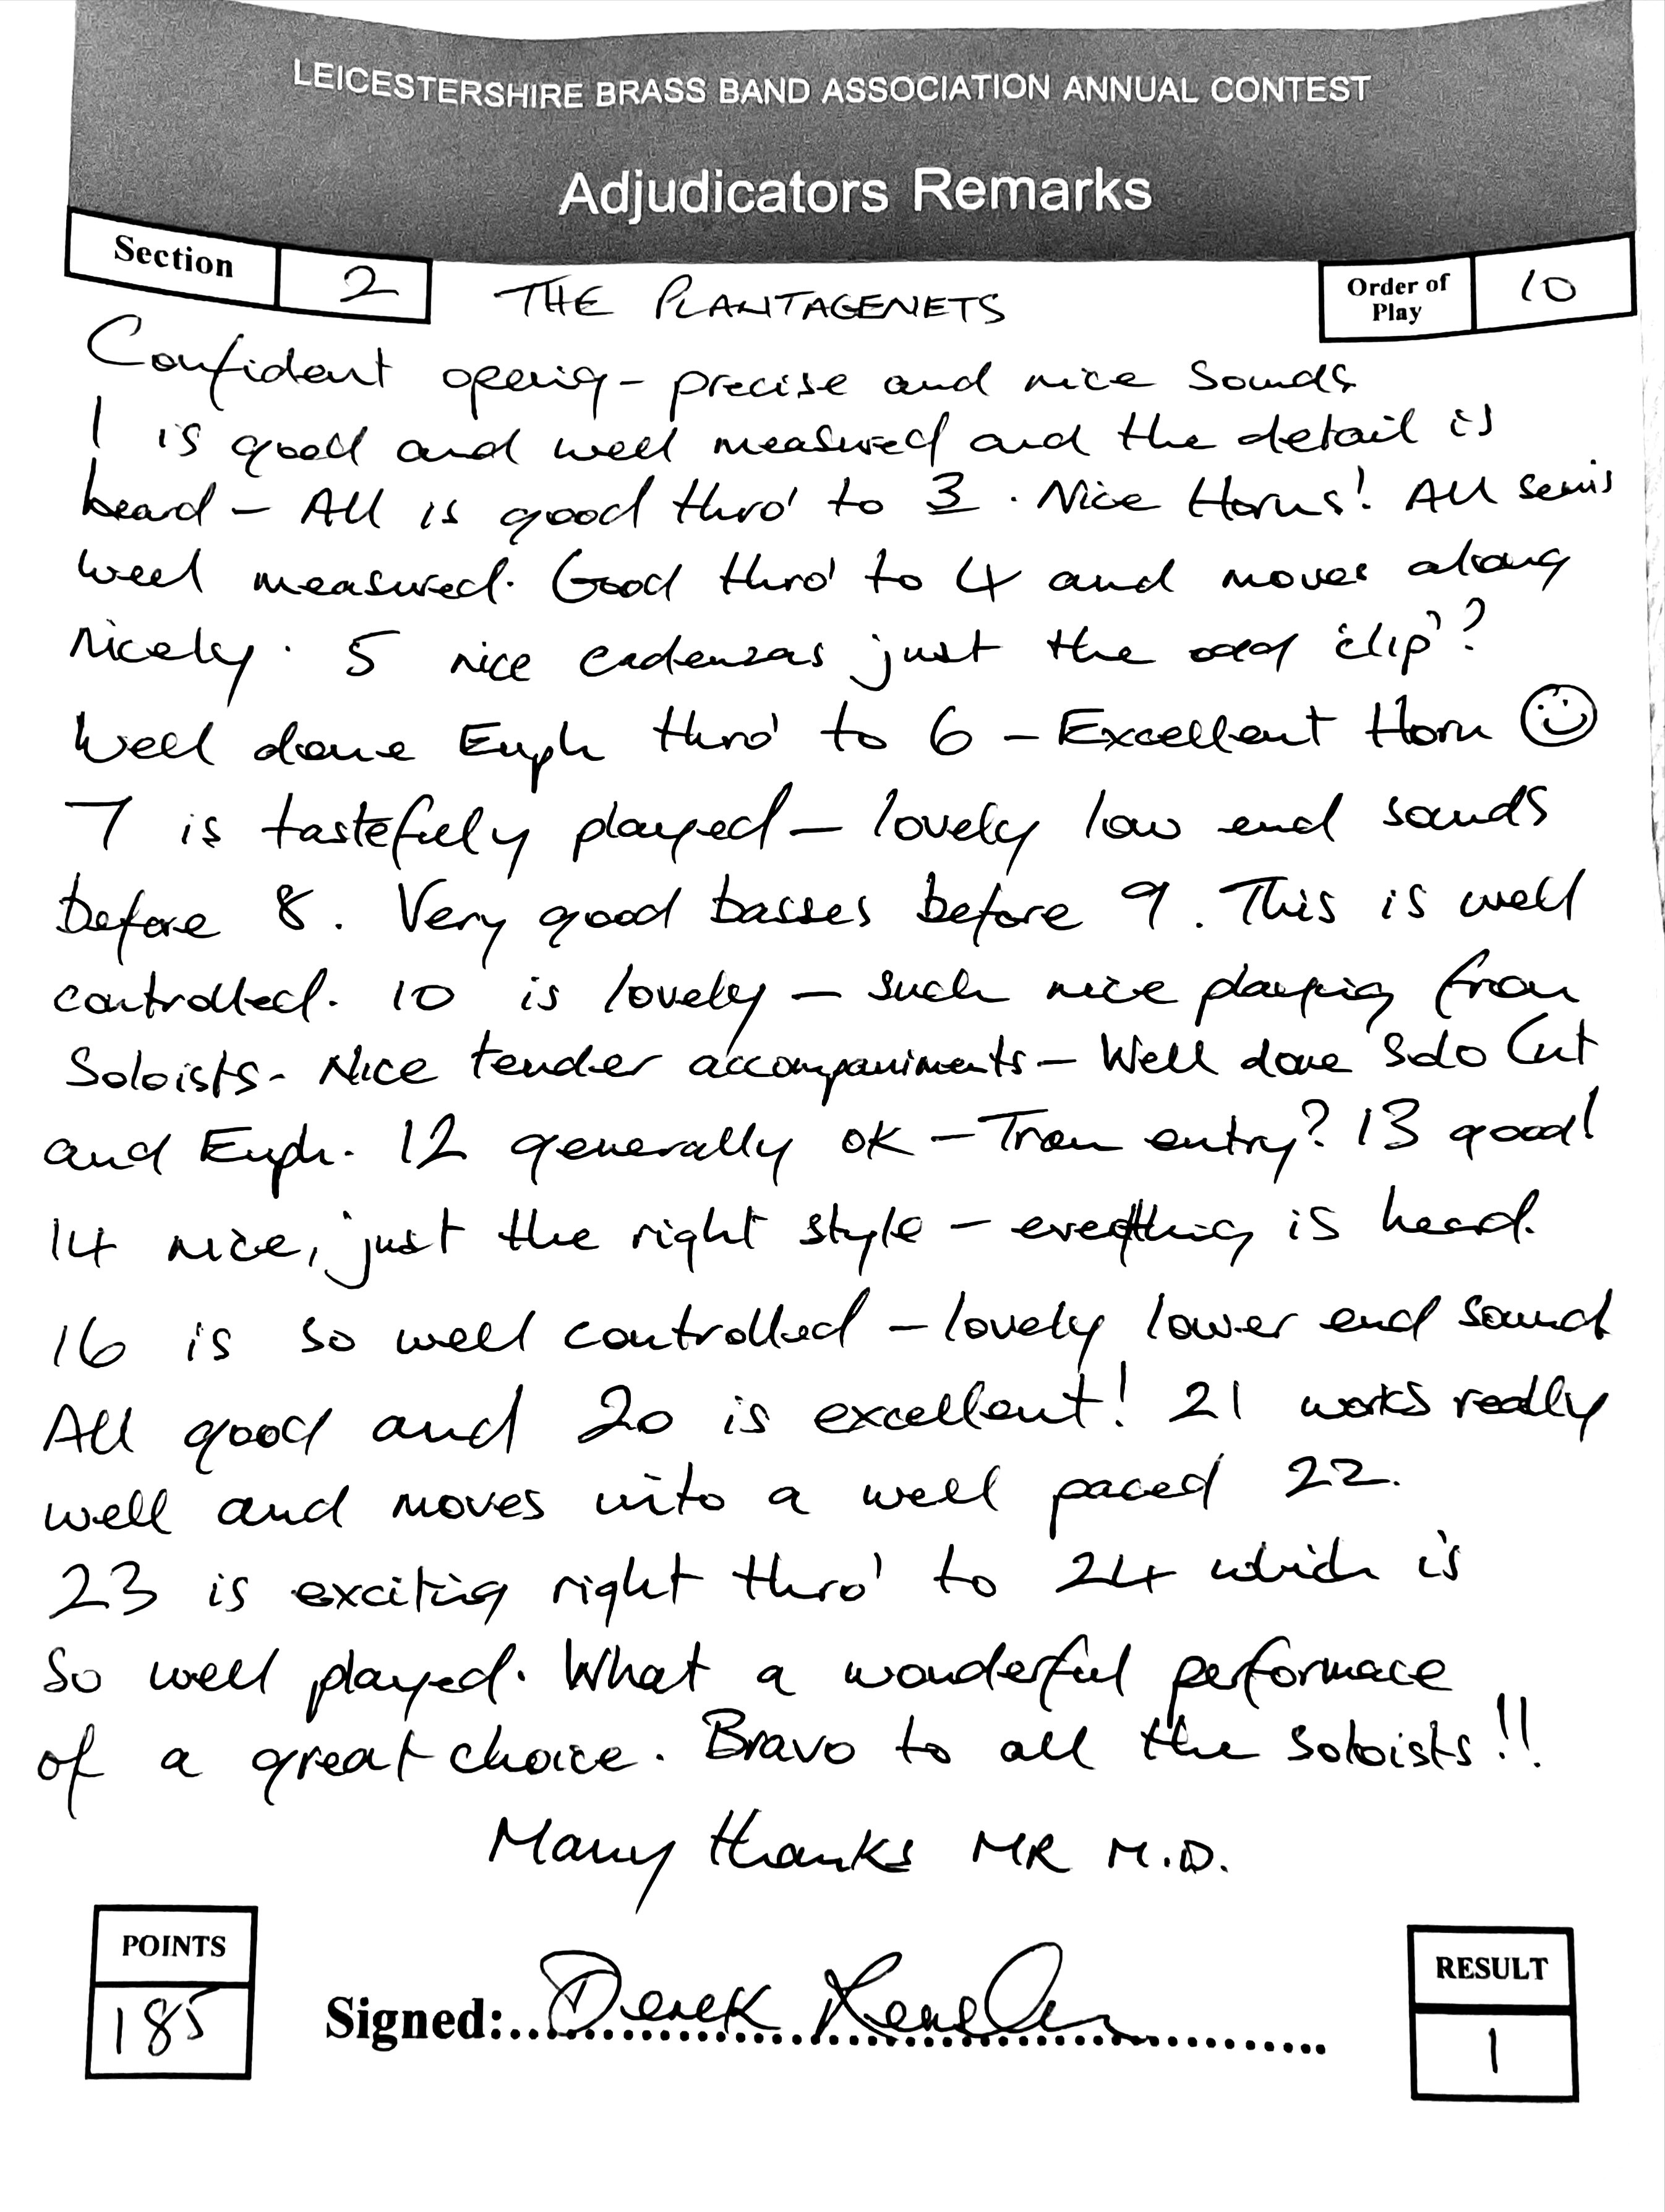 LEICESTERSHIRE BRASS BAND ASSOCIATION ANNUAL CONTEST
Adjudicators Remarks
Section 2 THE PLANTAGENETS Order of Play 10
Confident opening - precise and nice sounds
1 is good and well measured and the detail is
heard - All is good thro' to 3. Nice Horns! All semis
well measured. Good thro' to 4 and moves along
nicely. 5 nice cadenzas just the odd 'clip'?
Well done Euph thro' to 6 - Excellent Horn ☺
7 is tastefully played - lovely low end sounds
before 8. Very good basses before 9. This is well
controlled. 10 is lovely - such nice playing from
Soloists - Nice tender accompaniments - Well done Solo Cnt
and Euph. 12 generally OK - Trom entry? 13 good!
14 nice, just the right style - everthing is heard.
16 is so well controlled - lovely lower end sound
All good and 20 is excellent! 21 works really
well and moves into a well paced 22.
23 is exciting right thro' to 24 which is
so well played. What a wonderful performace
of a great choice. Bravo to all the soloists!!
Many thanks MR M.D.
POINTS
185
Signed: Derek
RESULT
1